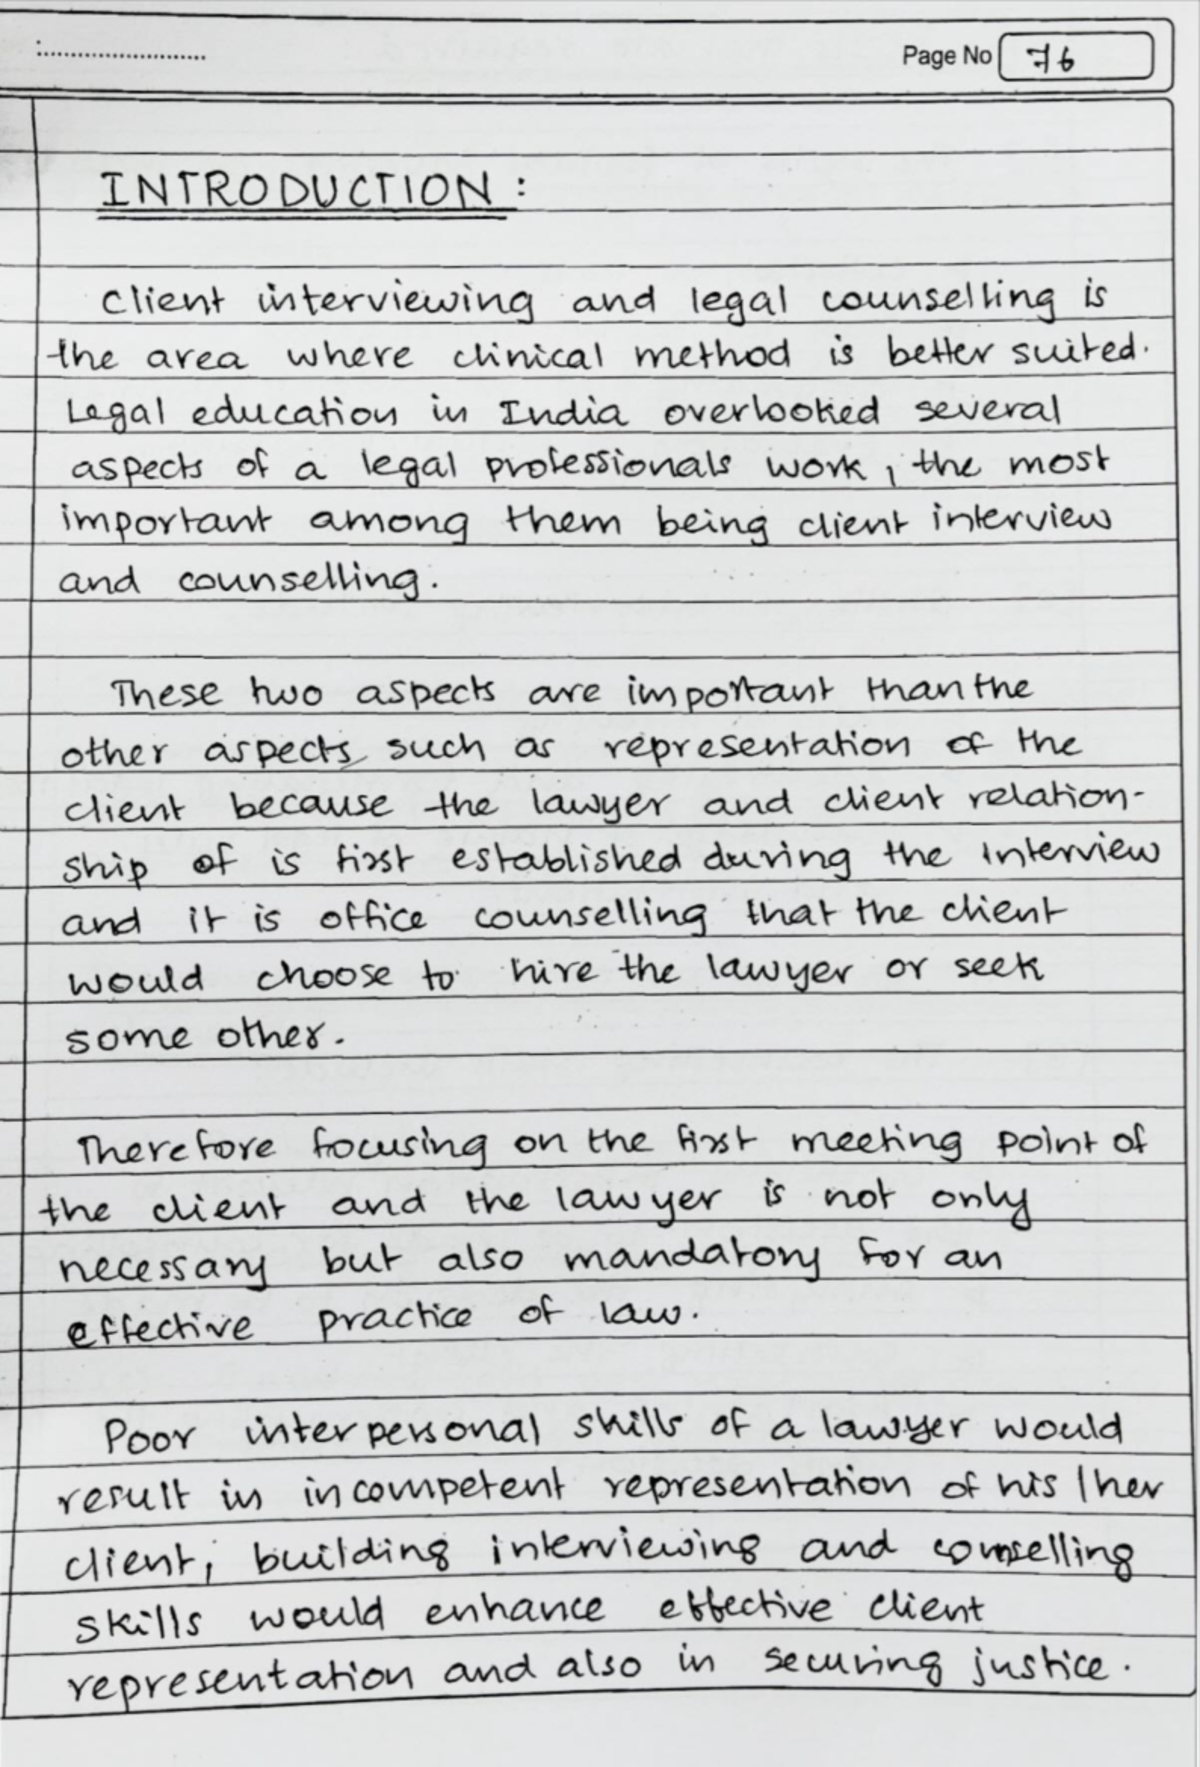 Page No 76
INTRODUCTION :
Client interviewing and legal counselling is
the area where clinical method is better suited.
Legal education in India overlooked several
aspects of a legal professionals work, the most
important among them being client interview
and counselling.
These two aspects are important than the
other aspects, such as representation of the
client because the lawyer and client relation-
ship of is first established during the Interview
and it is office counselling that the client
would choose to hire the lawyer or seek
some other.
Therefore focusing on the first meeting point of
the client and the lawyer is not only
necessary but also mandatory for an
effective practice of law.
Poor interpersonal skills of a lawyer would
result in incompetent representation of his / her
client, building interviewing and counselling
skills would enhance effective client
representation and also in securing justice.